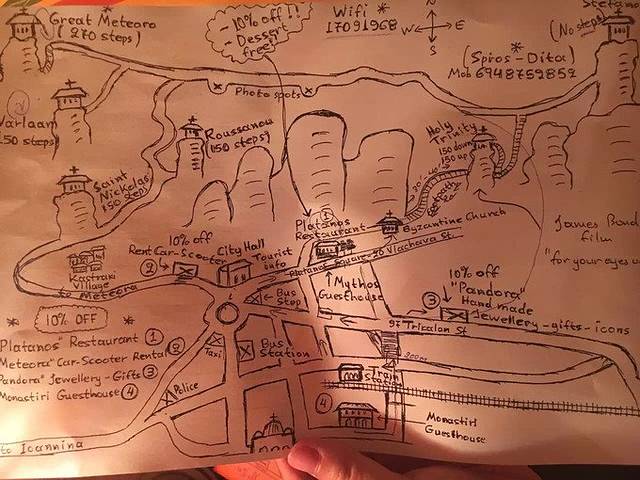 Great Meteoro
(270 steps)
-10% off!!
- Dessert
free!
Wifi *
17091968
N
W E
S
Stefano
(No steps)
*
(Spros - Dita)
Mob 6948759852
Photo spots
Varlaam
150 steps)
Roussanou
(150 steps)
Holy
Trinity
150 down
150 up
Saint
Nickolas
150 steps
footpath
Platanos
Restaurant
1
Byzantine Church
James Bond
film
"for your eyes
Kastraki
Village
to Meteora
10% off
Rent Car-Scooter
2
City Hall
Tourist
info
i
Platanos Square-20 Vlachava St.
Mythos
Guesthouse
Bus
Stop
10% off
"Pandora"
Handmade
3
Jewellery-gifts-icons
97 Trikalon St
* 10% OFF *
Platanos" Restaurant 1
Meteora" Car-Scooter Rental 2
Pandora" Jewellery-Gifts 3
Monastiri Guesthouse 4
Taxi
Bus
Station
Police
200m
Train
Station
4
Monastiri
Guesthouse
to Ioannina